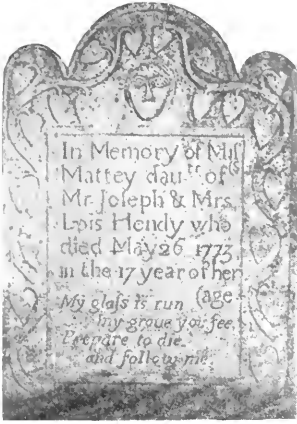 In Memory of Miſs
Mattey dau.tr of
Mr. Joſeph & Mrs.
Lois Hendy who
died May 26 1773
in the 17 year of her
(age
My glaſs is run
my grave you ſee
Prepare to die
and follow me